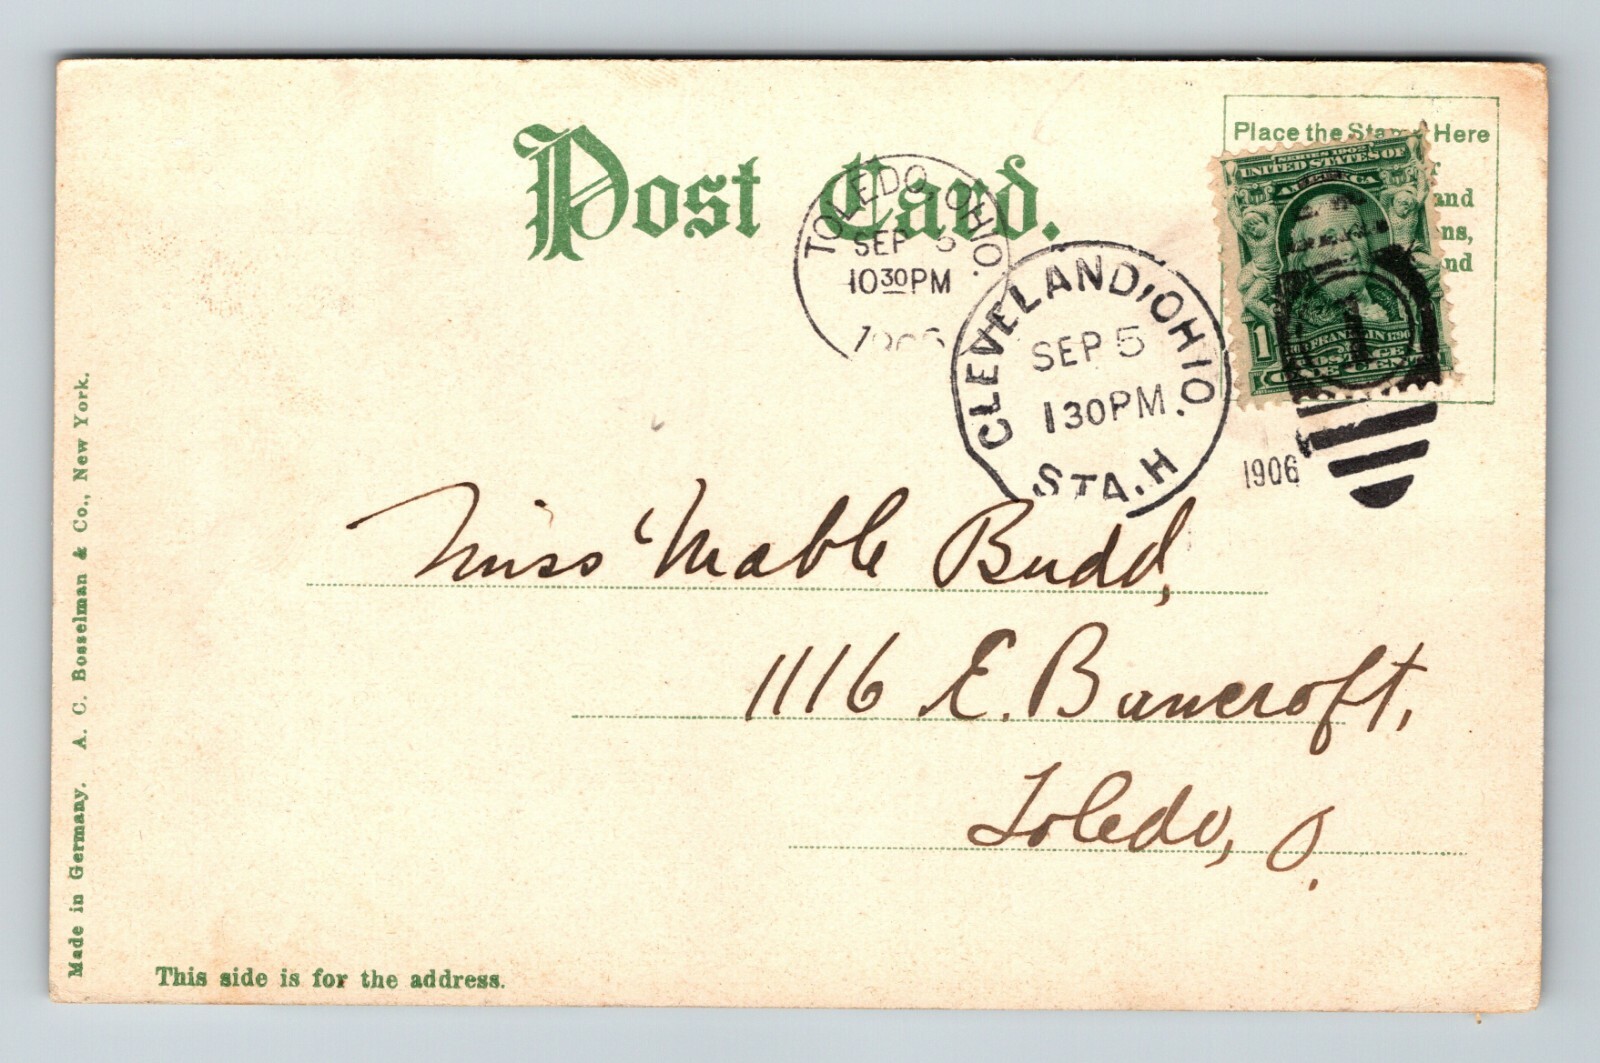 Post Card.
Place the Stamp Here
and
ns,
nd
SERIES 1902
UNITED STATES OF
AMERICA
1
FRANKLIN
POSTAGE
ONE CENT
1
TOLEDO, OHIO.
SEP 5
10 30 PM
1906
CLEVELAND, OHIO.
SEP 5
1 30 PM
STA. H
1906
Miss Mable Budd,
1116 E. Bancroft,
Toledo, O.
Made in Germany. A. C. Bosselman & Co., New York.
This side is for the address.